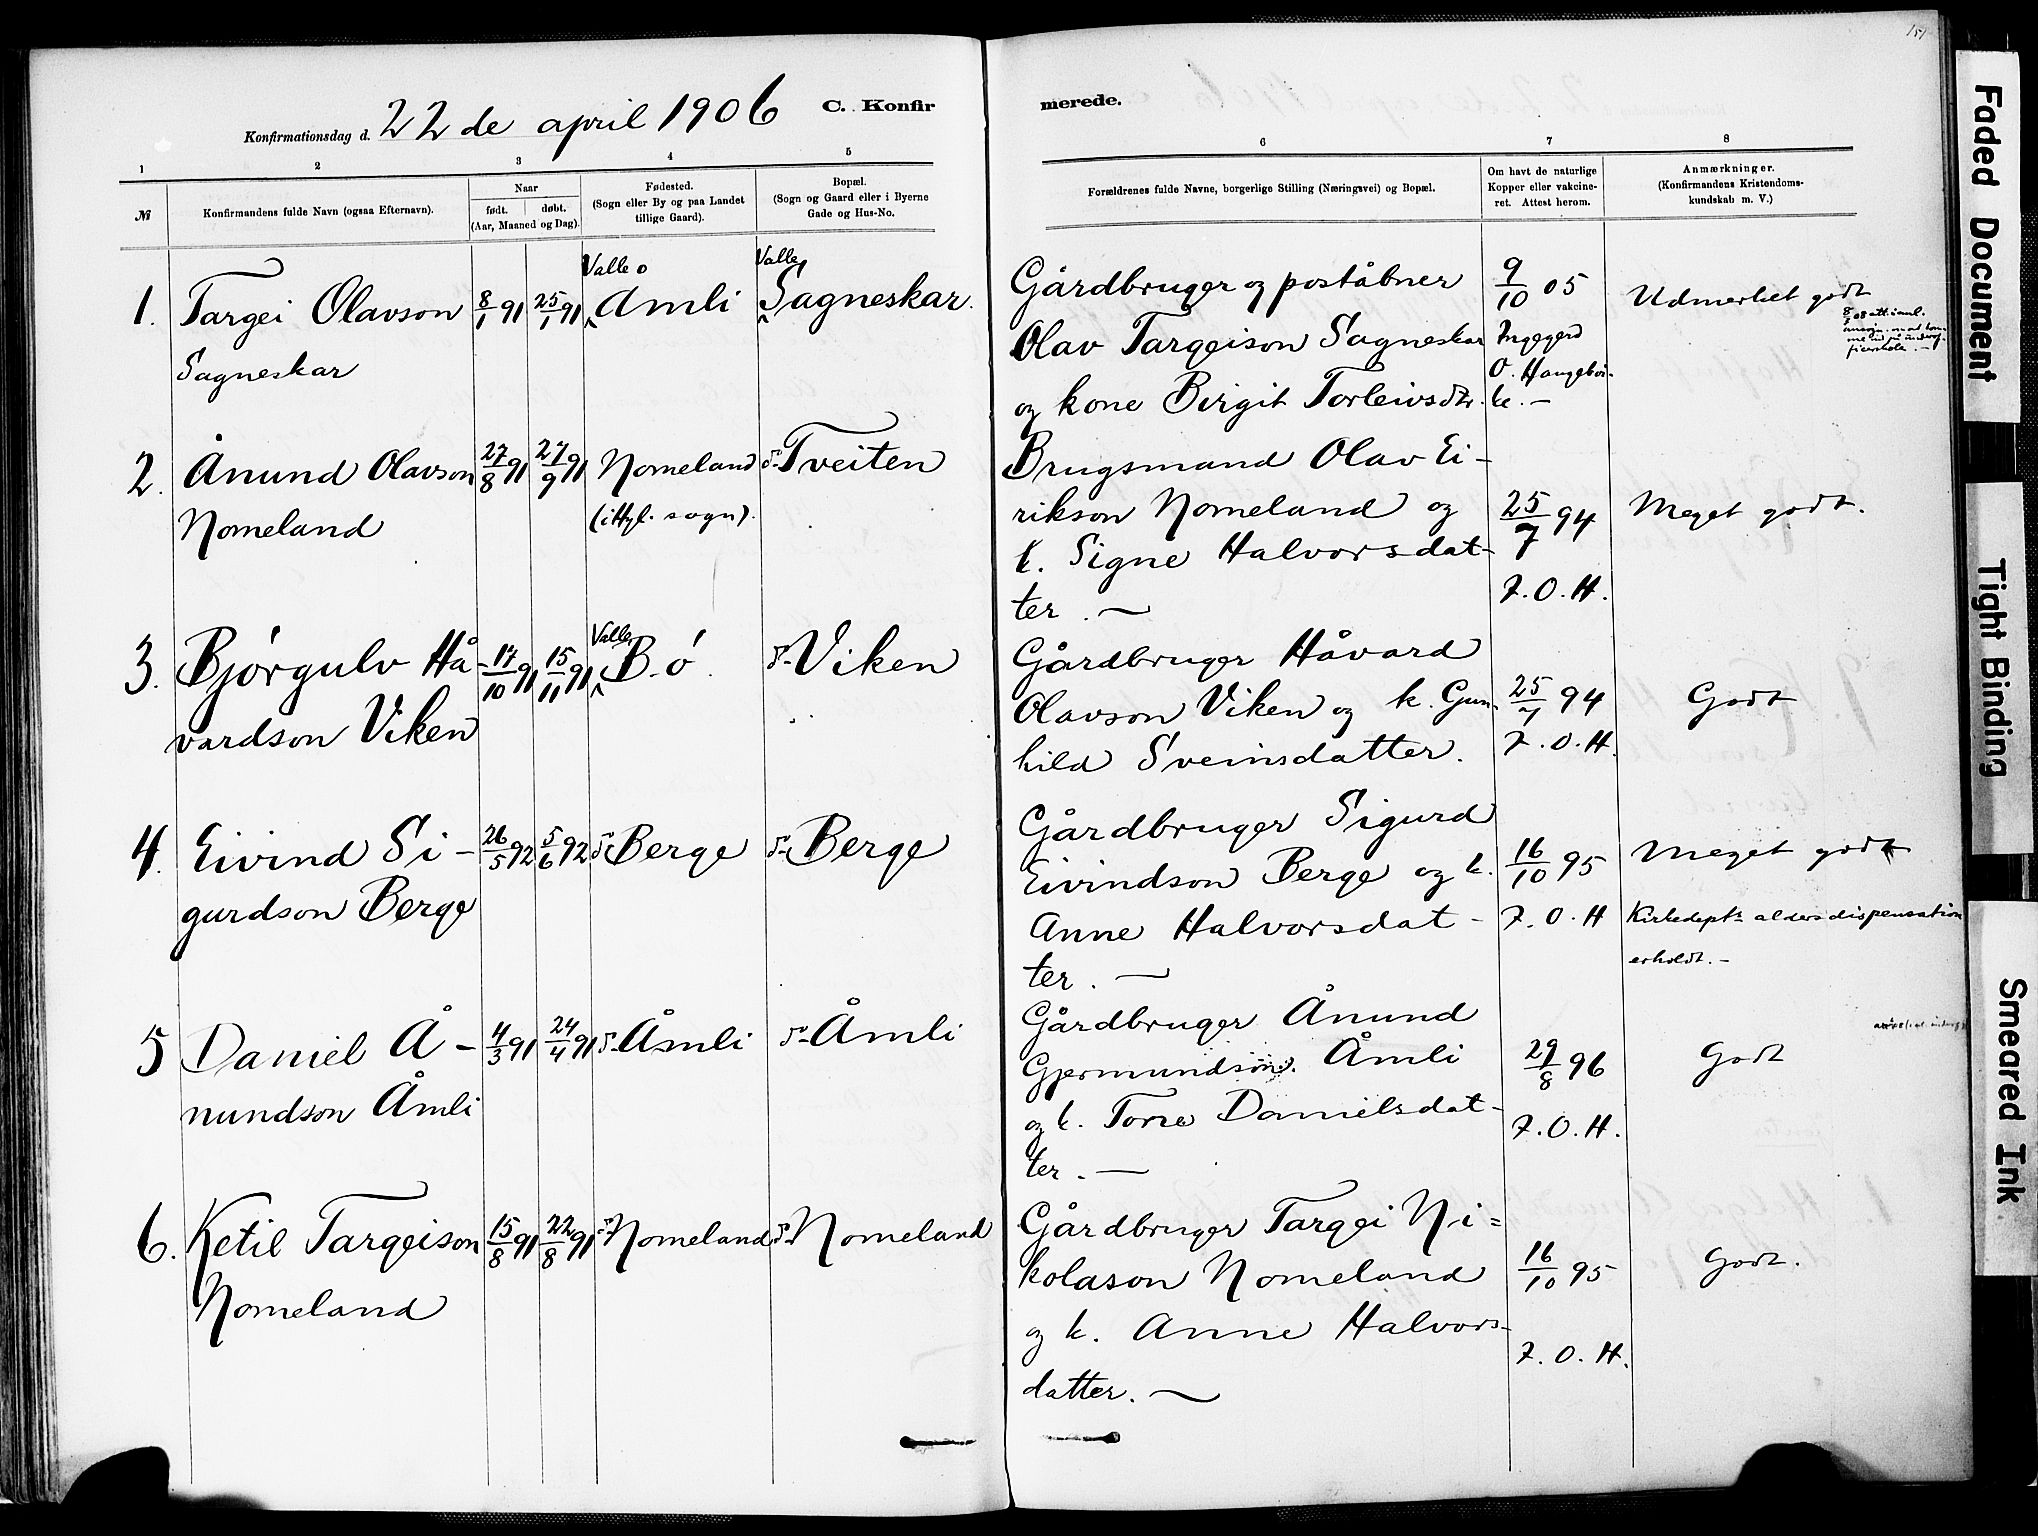 151
22 de april 1906
C. Konfir
merede.
Konfirmationsdag d.
1 2 3 4 5 6 7 8
№
Konfirmandens fulde Navn (ogsaa Efternavn).
Naar
født. døbt.
(Aar, Maaned og Dag).
Fødested.
(Sogn eller By og paa Landet
tillige Gaard).
Bopæl.
(Sogn og Gaard eller i Byerne
Gade og Hus-No.
Forældrenes fulde Navne, borgerlige Stilling (Næringsvei) og Bopæl.
Om havt de naturlige
Kopper eller vakcine-
ret. Attest herom.
Anmærkninger.
(Konfirmandens Kristendoms-
kundskab m. V.)
1. Targei Olavson
Sagneskar
8/1 91
25/1 91
Valle
Amli
Valle
Sagneskar.
Gårdbruger og poståbner
Olav Targeison Sagneskar
og kone Birgit Torleivsdtr.
9/10 05
Ingegerd
O. Haugeboi-
ke. –
Udmerket godt
2. Ånund Olavson
Nomeland
27/8 91
27/9 91
Nomeland
(ittyl. sogn).
do Tveiten
Brugsmand Olav Ei-
rikson Nomeland og
k. Signe Halvorsdat-
ter. –
25/7 94
I. O. H.
Meget godt.
3. Bjórgulv Hå-
vardson Viken
17/10 91
15/11 91
Valle
Bó.
do Viken
Gårdbruger Håvard
Olavson Viken og k. Gun-
hild Sveinsdatter.
25/7 94
I. O. H.
Godt
4. Eivind Si-
gurdson Berge
26/5 92
5/6 92
do Berge
do Berge
Gårdbruger Sigurd
Eivindson Berge og k.
Anne Halvorsdat-
ter. –
16/10 95
I. O. H
Meget godt
Kirkedepts aldersdispensation
erholdt. –
5 Daniel Å-
nundson Åmli
4/3 91
24/4 91
do Åmli
do Åmli
Gårdbruger Ånund
Gjermundson. Åmli
og k. Torre Danielsdat-
ter. –
29/8 96
I. O. H.
Godt
6. Ketil Targeison
Nomeland
15/8 91
22/8 91
do Nomeland
do Nomeland
Gårdbruger Targei Ni=
kolason Nomeland
og k. Anne Halvors-
datter. –
16/10 95
I. O. H.
Godt.
Faded Document
Tight Binding
Smeared Ink